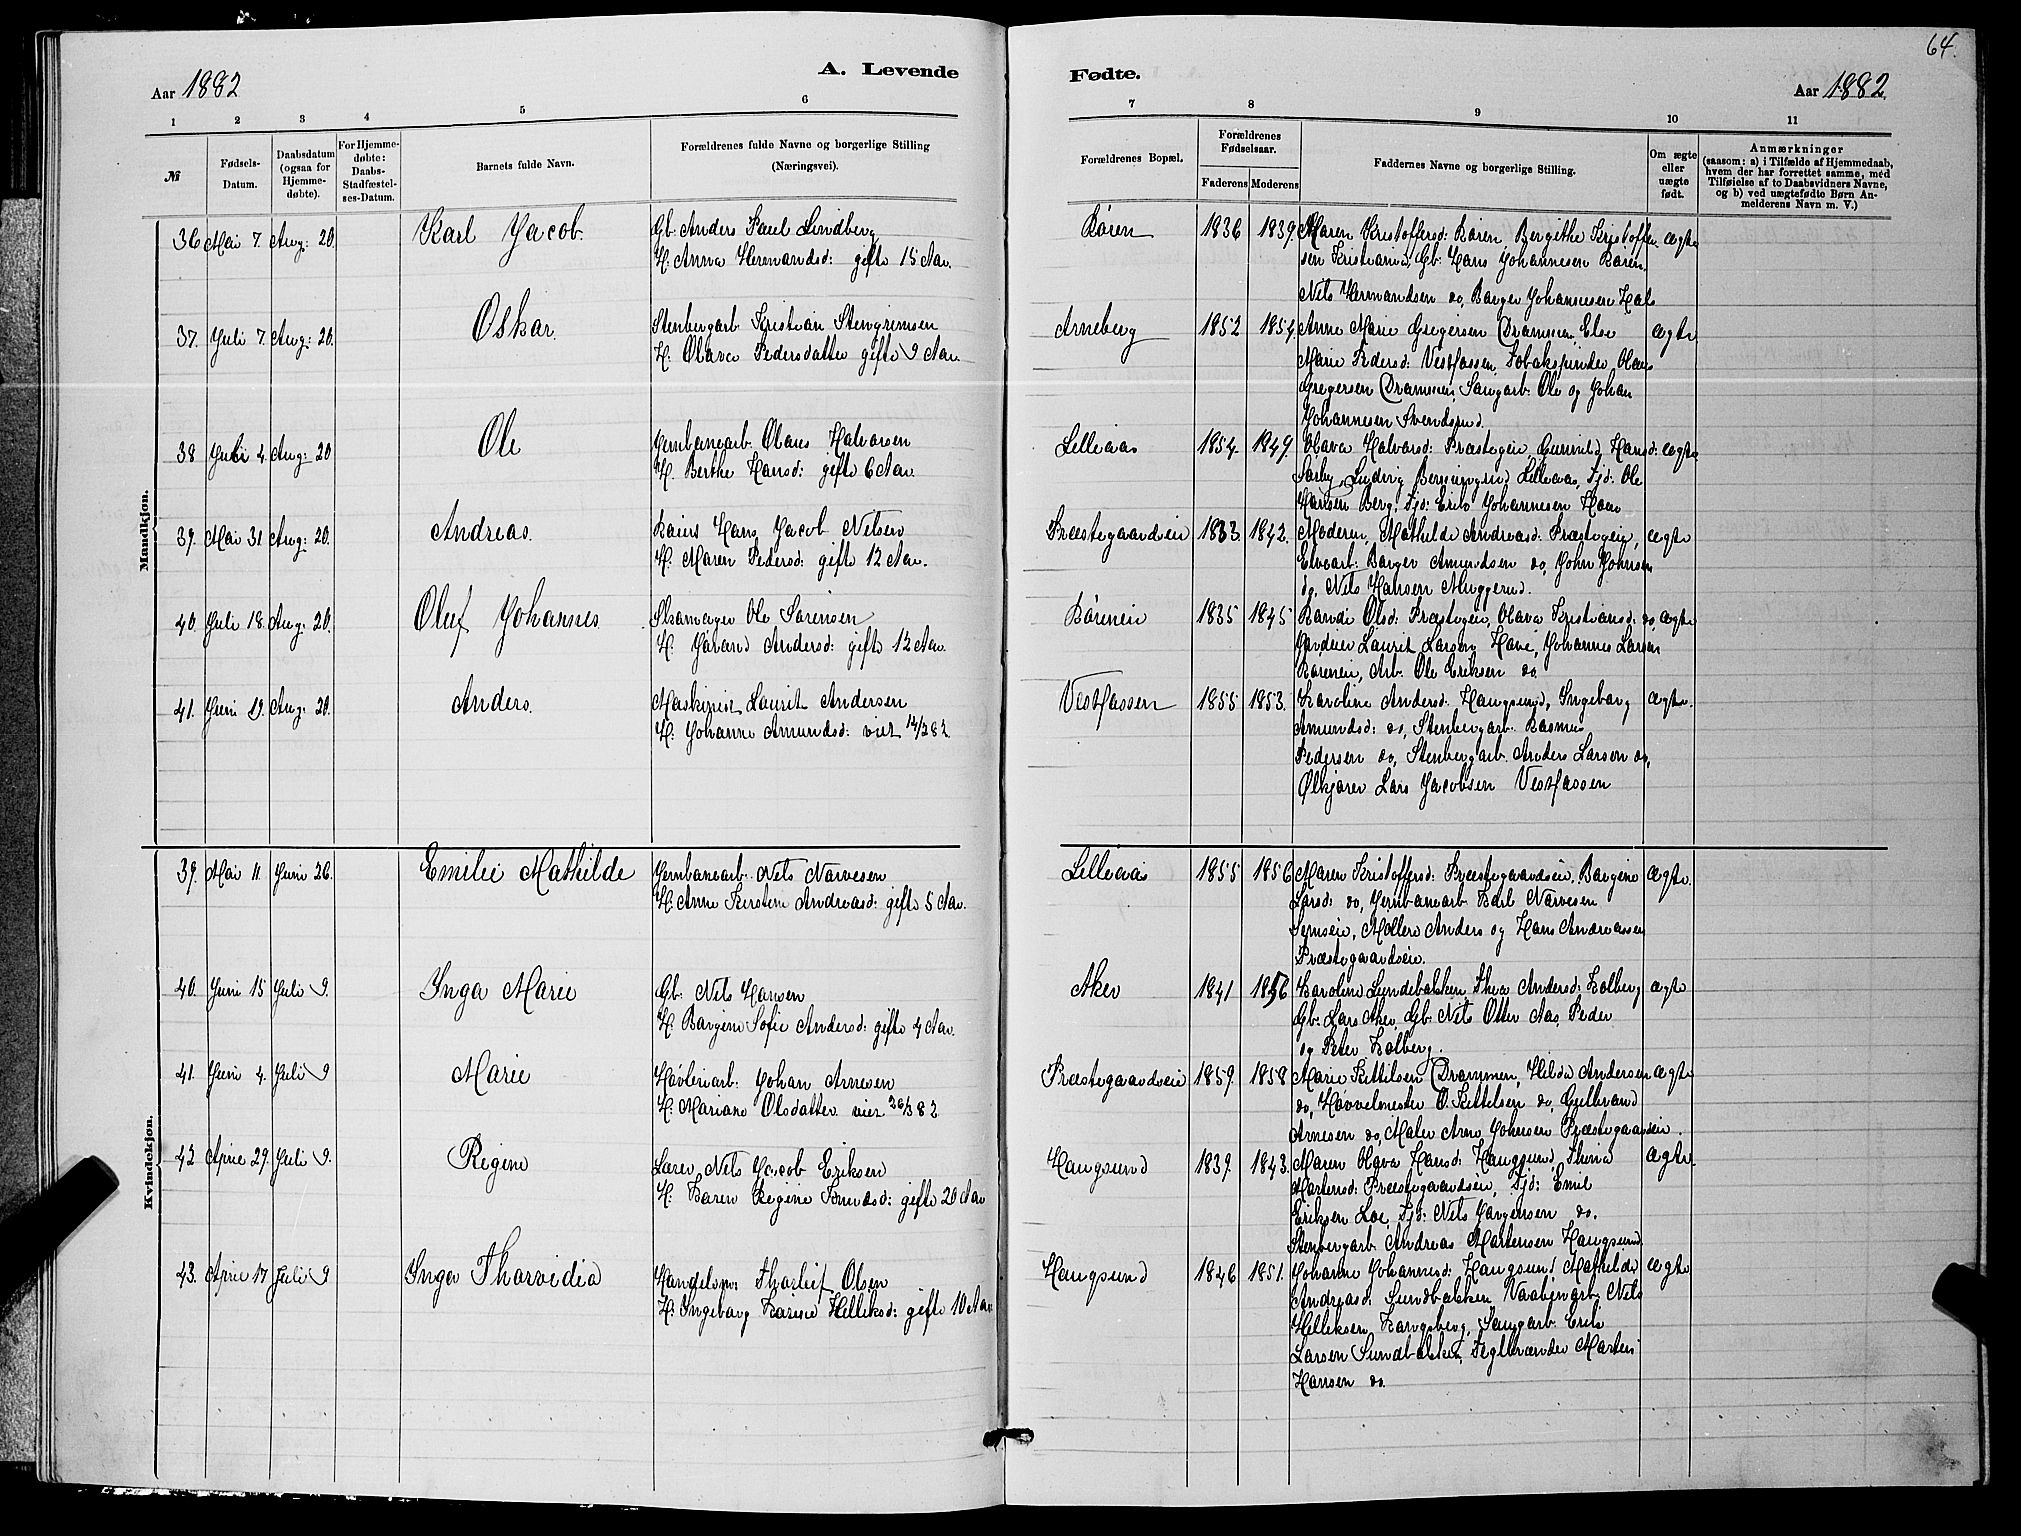 64.
A. Levende
Fødte.
Aar 1882
Aar 1882
1 2 3 4 5 6 7 8 9 10 11
№
Fødsels-Datum.
Daabsdatum (ogsaa for Hjemmedøbte).
For Hjemmedøbte: Daabs-Stadfæstelses-Datum.
Barnets fulde Navn.
Forældrenes fulde Navne og borgerlige Stilling (Næringsvei).
Forældrenes Bopæl.
Forældrenes Fødselsaar.
Faderens Moderens
Faddernes Navne og borgerlige Stilling.
Om ægte eller uægte født.
Anmærkninger
(saasom: a) i Tilfælde af Hjemmedaab, hvem der har forrettet samme, med Tilføielse af to Daabsvidners Navne, og b) ved uægtefødte Børn Anmelderens Navn m. V.)
Mandkjøn.
36 Mai 7. Aug: 20. Karl Jacob. Gb: Anders Paul Lindberg Bøien 1836 1839. Maren Kristoffersd: Børen, Bergithe Kristoffer ægte
H: Anna Hermandsd: gifte 15 Aar. sen Kristiania, Gb: Hans Johannesen Børen,
Nils Hermandsen do, Børger Johannesen Hals
37. Juli 7. Aug: 20. Oskar. Stenbergarb. Kristian Stengrimsen Arneberg 1852 1854. Anne Marie Gregersen Drammen, Else ægte
H. Olava Pedersdatter gifte 9 Aar. Marie Pedersd: Vestfossen, Tobakspinder Olaus
Gregersen Drammen, Saugarb: Ole og Johan
Johannesen Svendsrud.
38 Juli 4. Aug: 20 Ole Jernbanearb. Olaus Halvorsen Lilleaas 1854. 1849. Olava Halvorsd: Præstegeie, Gunild Hansd: ægte
H. Berthe Hansd: gifte 6 Aar. Sørby, Ludvig Lilleaas, Tjd: Ole
Hansen Berg, Tjd: Erik Johannesen Hoen
39. Mai 31 Aug: 20. Andreas. Hans Jacob Nilsen Præstegaardseie 1833. 1842. Moderen, Mathilde Andreasd: Præstegeie, ægte
H. Maren Pedersd: gifte 12 Aar. Elvearb: Børger Amundsen do, John Johnsen
do, Nils Hansen Muggerud.
40. Juli 18. Aug: 20. Oluf Johannes. Ølsamager Ole Sørensen Børeneie 1835 1845 Randi Olsd: Præstegeie, Olava Kristiansd: do, ægte
H. Jørand Andersd: gifte 12 Aar. Laurit Larsen Havie, Johannes Larsen
Børeneie, Arb. Ole Eriksen do.
41. Juni 19. Aug: 20. Anders. Maskinist Laurit Andersen Vestfossen 1855 1853. Karoline Andersd: Haugsund, Ingeborg ægte.
H: Johanne Amundsd: viet 14/3 82 Amundsd: do, Stenbergarb: Rasmus
Pedersen do, Stenbergarb. Anders Larsen do,
Ølkjører Lars Jacobsen Vestfossen
Kvindekjøn.
39. Mai 11. Juni 26. Emilie Mathilde Jernbanearb. Nils Narvesen Lilleaas 1855 1856 Maren Kristoffersd: Præstegaardseie, Børgine ægte.
H: Anne Kirstine Andreasd: gifte 5 Aar. Larsd: do, Jernbanearb Karl Narvesen
Semseie, Møllere Anders og Hans Andreassen
Præstegaardseie.
40. Juni 15 Juli 9. Inga Marie Gb: Nils Hansen Aker 1841 1856 Karoline Lundebakken, Thea Andersd: Kolberg ægte
H: Børgine Sofie Andersd: gifte 4 Aar. Gb: Lars Aker, Gb: Nils Otter Aas, Peder
og Peter Kolberg.
41. Juni 4. Juli 9 Marie Høvleriarb: Johan Arnesen Præstegaardseie 1859. 1858 Marie Kittilsen Drammen, Hilda Andersen ægte
H. Mariane Olsdatter viet 26/3 82 do, Høvelmester O Kittelsen do, Gulbrand
Arnesen do, Maler Arne Johnsen Præstegaardseie.
42 April 29. Juli 9. Regine Lærer Nils Jacob Eriksen Haugsund 1839. 1843. Maren Olava Hansd: Haugsund, Thina ægte.
H: Karen Regine Knudsd: gifte 20 Aar Mortensd: Præstegaardseie, Tjd: Emil
Eriksen Loe, Tjd: Nils Jørgensen do.
Stenbergarb. Andreas Mortensen Haugsund.
43. April 17 Juli 9 Inga Thorvidia Handelsm: Thorleif Olsen Haugsund 1846 1851. Johanne Johannesd: Haugsund, Mathilde ægte
H: Ingeborg Karine Helliksd: gifte 10 Aar. Andreasd: Sundbakken, Vaabenarb. Nils
Helliksen, Kongsberg, Saugarb: Erik
Larsen Sundbakken, Teglbrænder Morten
Hansen do.